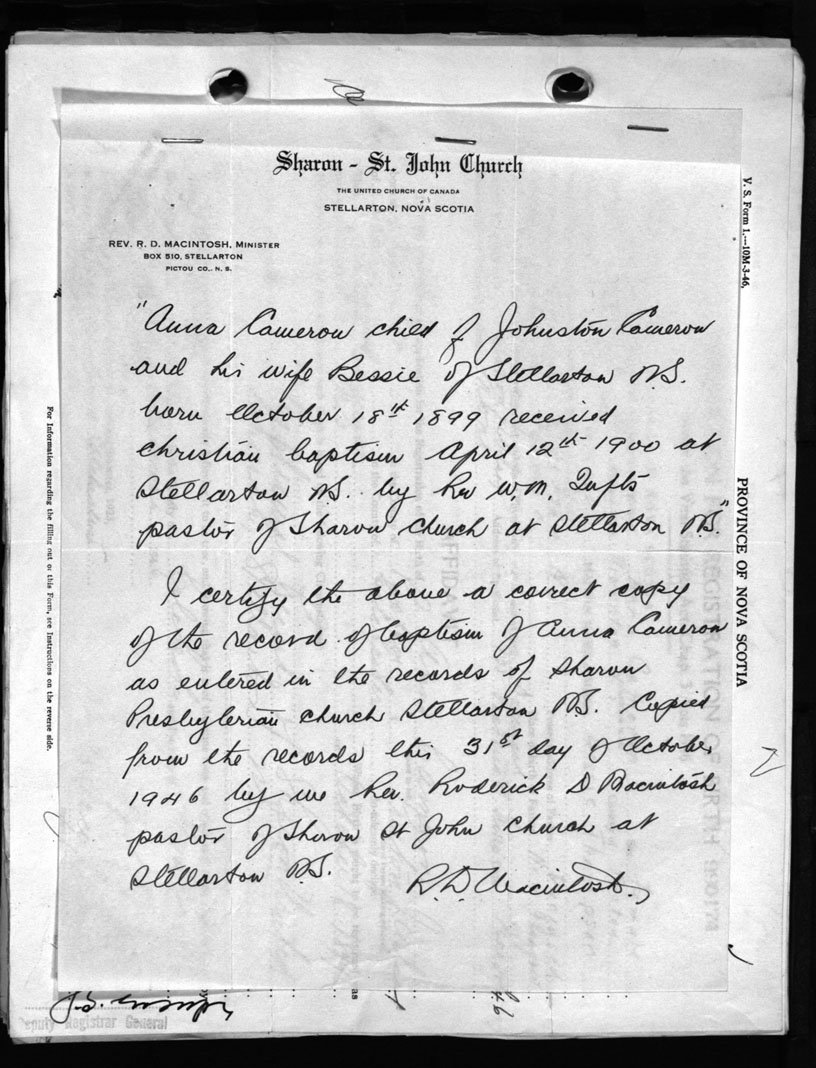 Sharon - St. John Church
THE UNITED CHURCH OF CANADA
STELLARTON, NOVA SCOTIA
REV. R. D. MACINTOSH, MINISTER
BOX 510, STELLARTON
PICTOU CO., N. S.
"Anna Cameron child of Johnston Cameron
and his wife Bessie of Stellarton N.S.
born October 18th 1899 received
christian baptism April 12th 1900 at
Stellarton N.S. by Rev W.M. Tufts
pastor of Sharon church at Stellarton N.S."
I certify the above a correct copy
of the record of baptism of Anna Cameron
as entered in the records of Sharon
Presbyterian church Stellarton N.S. Copied
from the records this 31st day of October
1946 by me Rev. Roderick D Macintosh
pastor of Sharon St John church at
Stellarton N.S.
R. D. Macintosh.
V. S. Form 1.—10M-3-46,
PROVINCE OF NOVA SCOTIA
For Information regarding the filling out of this Form, see Instructions on the reverse side.
as
46
Deputy Registrar General